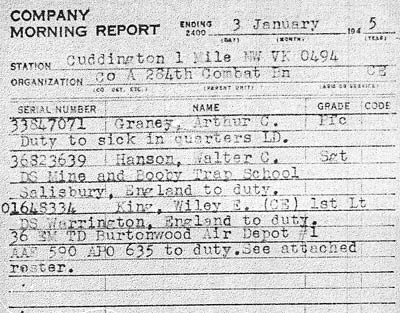 COMPANY
MORNING REPORT ENDING 2400 3 January 194 5
(DAY) (MONTH) (YEAR)
STATION Cuddington 1 Mile NW VK 0494
ORGANIZATION Co A 284th Combat Bn CE
(CO. DET. ETC.) (PARENT UNIT) (ARM OR SERVICE)
SERIAL NUMBER NAME GRADE CODE
33847071 Graney, Arthur C. Pfc
Duty to sick in quarters LD.
36823639 Hanson, Walter C. Sgt
DS Mine and Booby Trap School
Salisbury, England to duty.
01648334 King, Wiley E. (CE) 1st Lt
DS Warrington, England to duty.
36 EM TD Burtonwood Air Depot #1
AAF 590 APO 635 to duty.See attached
roster.